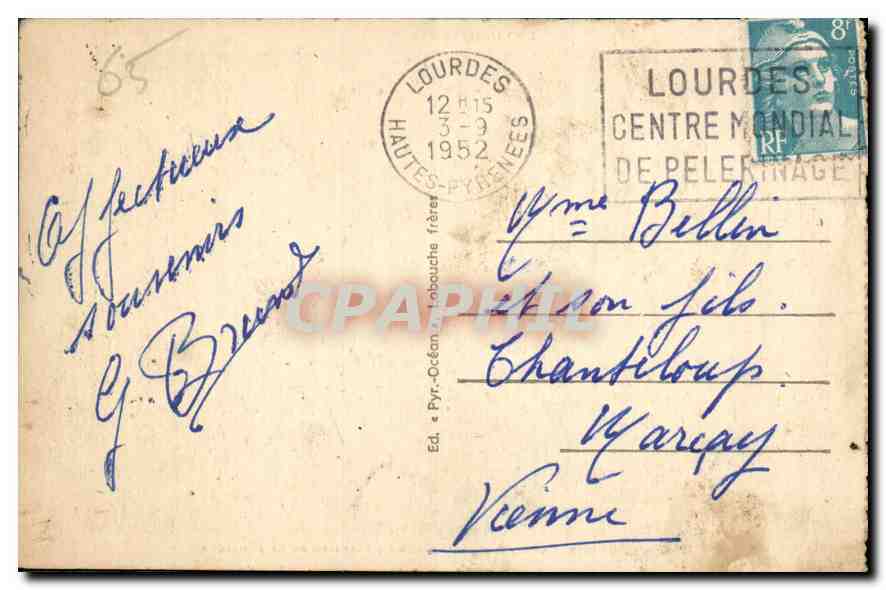 65
LOURDES
12H15
3-9
1952
HAUTES-PYRENEES
LOURDES
CENTRE MONDIAL
DE PELERINAGE
8F
POSTES
RF
Affectueux
souvenirs
G.
Ed. « Pyr.-Océan » Labouche frères
CPAPHIL
Mme Bellin
et son fils.
Chanteloup.
Marçay
Vienne